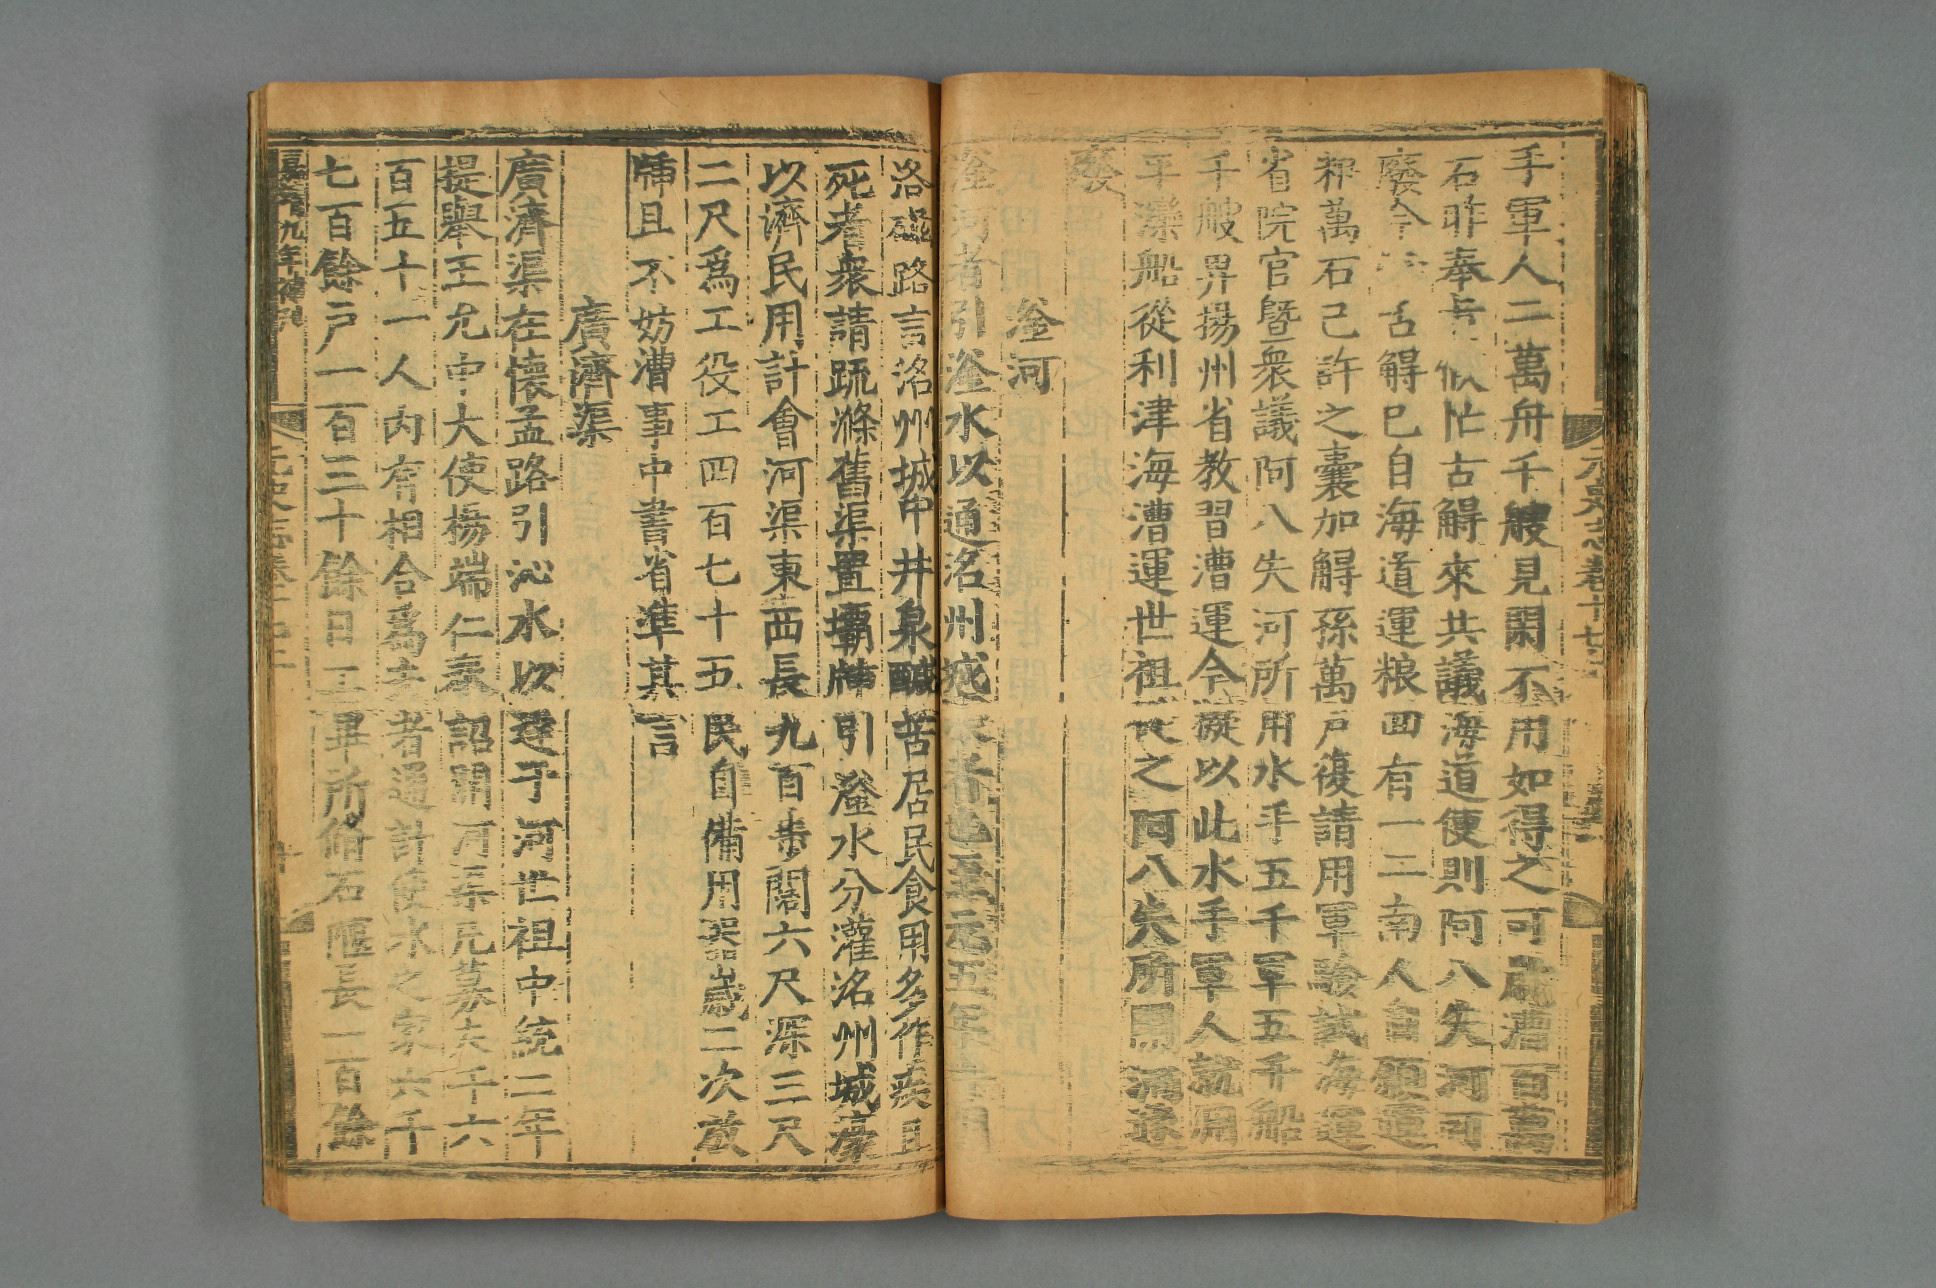 手軍人二萬舟千艘見閑不用如得之可歲漕百萬
石昨奉旨候忙古觧來共議海道便則阿八失河可
廢今忙古觧已自海道運粮四有一二南人自願運
粮萬石已許之囊加觧孫萬戸復請用軍驗試海運
省院官暨衆議阿八失河所用水手五千軍五千船
千艘畀揚州省教習漕運今擬以此水手軍人就用
平灤船從利津海漕運世祖從之阿八失所開河遂
廢
滏河
滏河者引滏水以通洺州城濠者也至元五年十月
洺磁路言洺州城中井泉鹹苦居民食用多作疾且
死者衆請疏滌舊渠置壩牐引滏水分灌洺州城濠
以濟民用計會河渠東西長九百步闊六尺深三尺
二尺爲工役工四百七十五民自備用器歲二次放
牐且不妨漕事中書省準其言
廣濟渠
廣濟渠在懷孟路引沁水以達于河世祖中統二年
提舉王允中大使楊端仁奉詔開河渠凡募夫千六
百五十一人内有相合爲夫者通計使水之家六千
七百餘戸一百三十餘日工畢所修石堰長一百餘
元史志卷十七